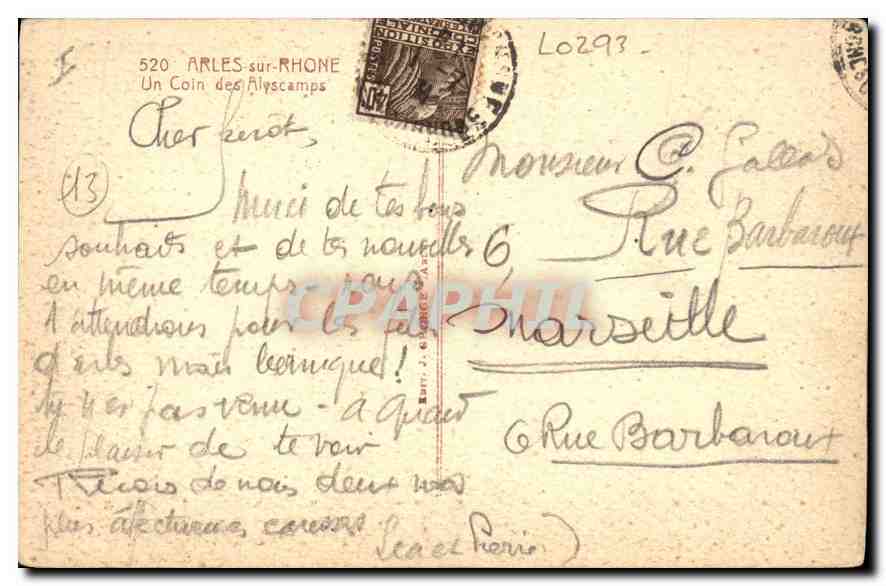 520 ARLES-sur-RHONE
Un Coin des Alyscamps
L0293
EXPOSITION
COLONIALE
POSTES
13
Cher
Merci de tes bons
souhaits et de tes nouvelles
en même temps - nous
t'attendions pour les
mais bernique!
tu n'es pas venu - à quand
le plaisir de te voir
Reçois de nous deux nos
plus affectueuses caresses
Lea et Pierre
EDIT. J. GEORGE, ARLES
CPAPHIL
Monsieur C.
6, Rue Barbaroux
Marseille
6 Rue Barbaroux